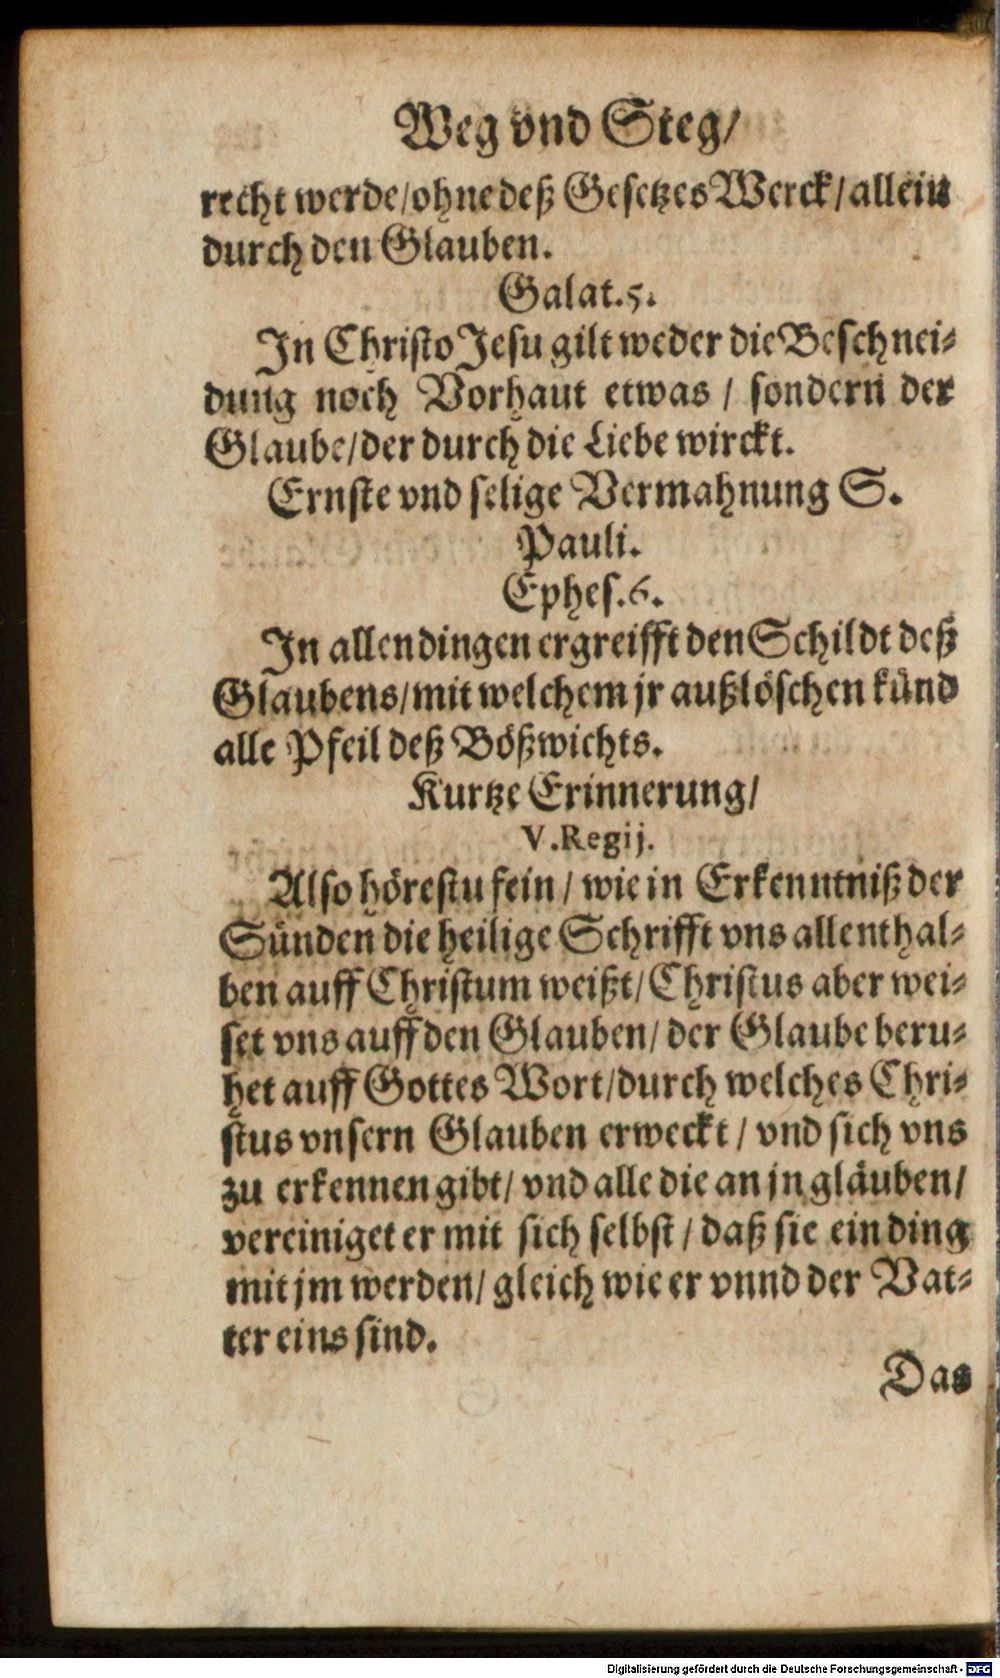 Weg vnd Steg/
recht werde/ohne deß Gesetzes Werck/allein
durch den Glauben.
Galat.5.
In Christo Jesu gilt weder die Beschnei-
dung noch Vorhaut etwas / sondern der
Glaube/der durch die Liebe wirckt.
Ernste vnd selige Vermahnung S.
Pauli.
Ephes.6.
In allen dingen ergreifft den Schildt deß
Glaubens/mit welchem jr außlöschen künd
alle Pfeil deß Bößwichts.
Kurtze Erinnerung/
V.Regij.
Also hörestu fein / wie in Erkenntniß der
Sünden die heilige Schrifft vns allenthal-
ben auff Christum weißt/Christus aber wei-
set vns auff den Glauben/der Glaube beru-
het auff Gottes Wort/durch welches Chri-
stus vnsern Glauben erweckt / vnd sich vns
zu erkennen gibt/ vnd alle die an jn gläuben/
vereiniget er mit sich selbst / daß sie ein ding
mit jm werden/ gleich wie er vnnd der Vat-
ter eins sind.
Das
Digitalisierung gefördert durch die Deutsche Forschungsgemeinschaft - DFG